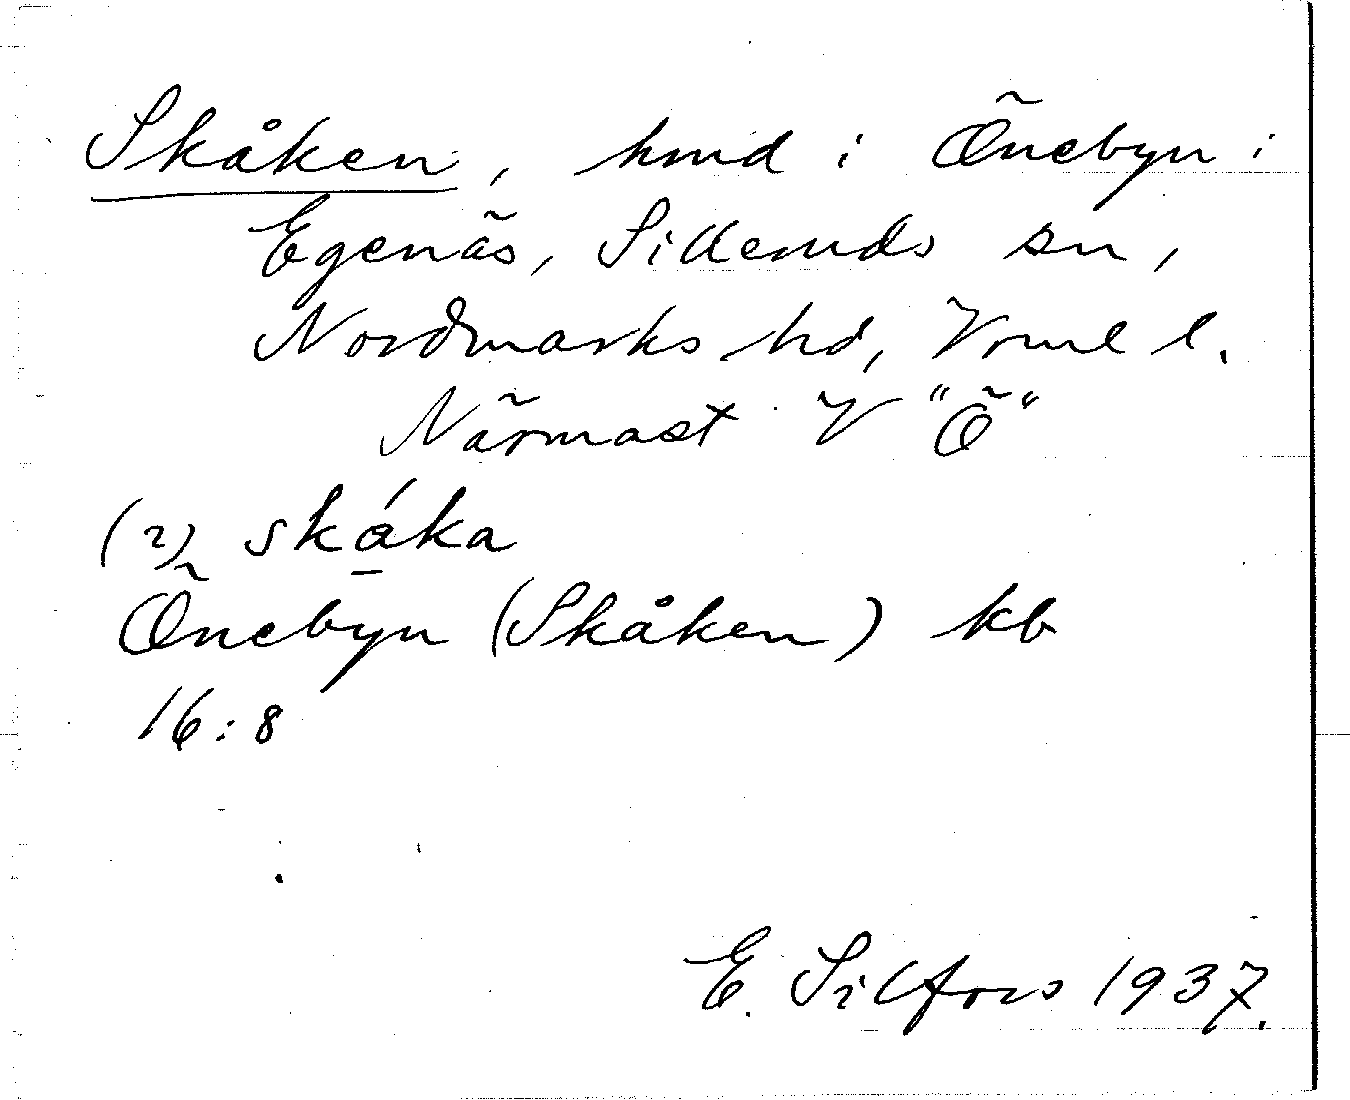 Skåken, hmd i Önebyn i
Egenäs, Sillemds sn,
Nordmarks hd, Vrml l.
Närmast V "Ö"
(2) skáka
Önebyn (Skåken) kb
16:8
E. Silfors 1937.